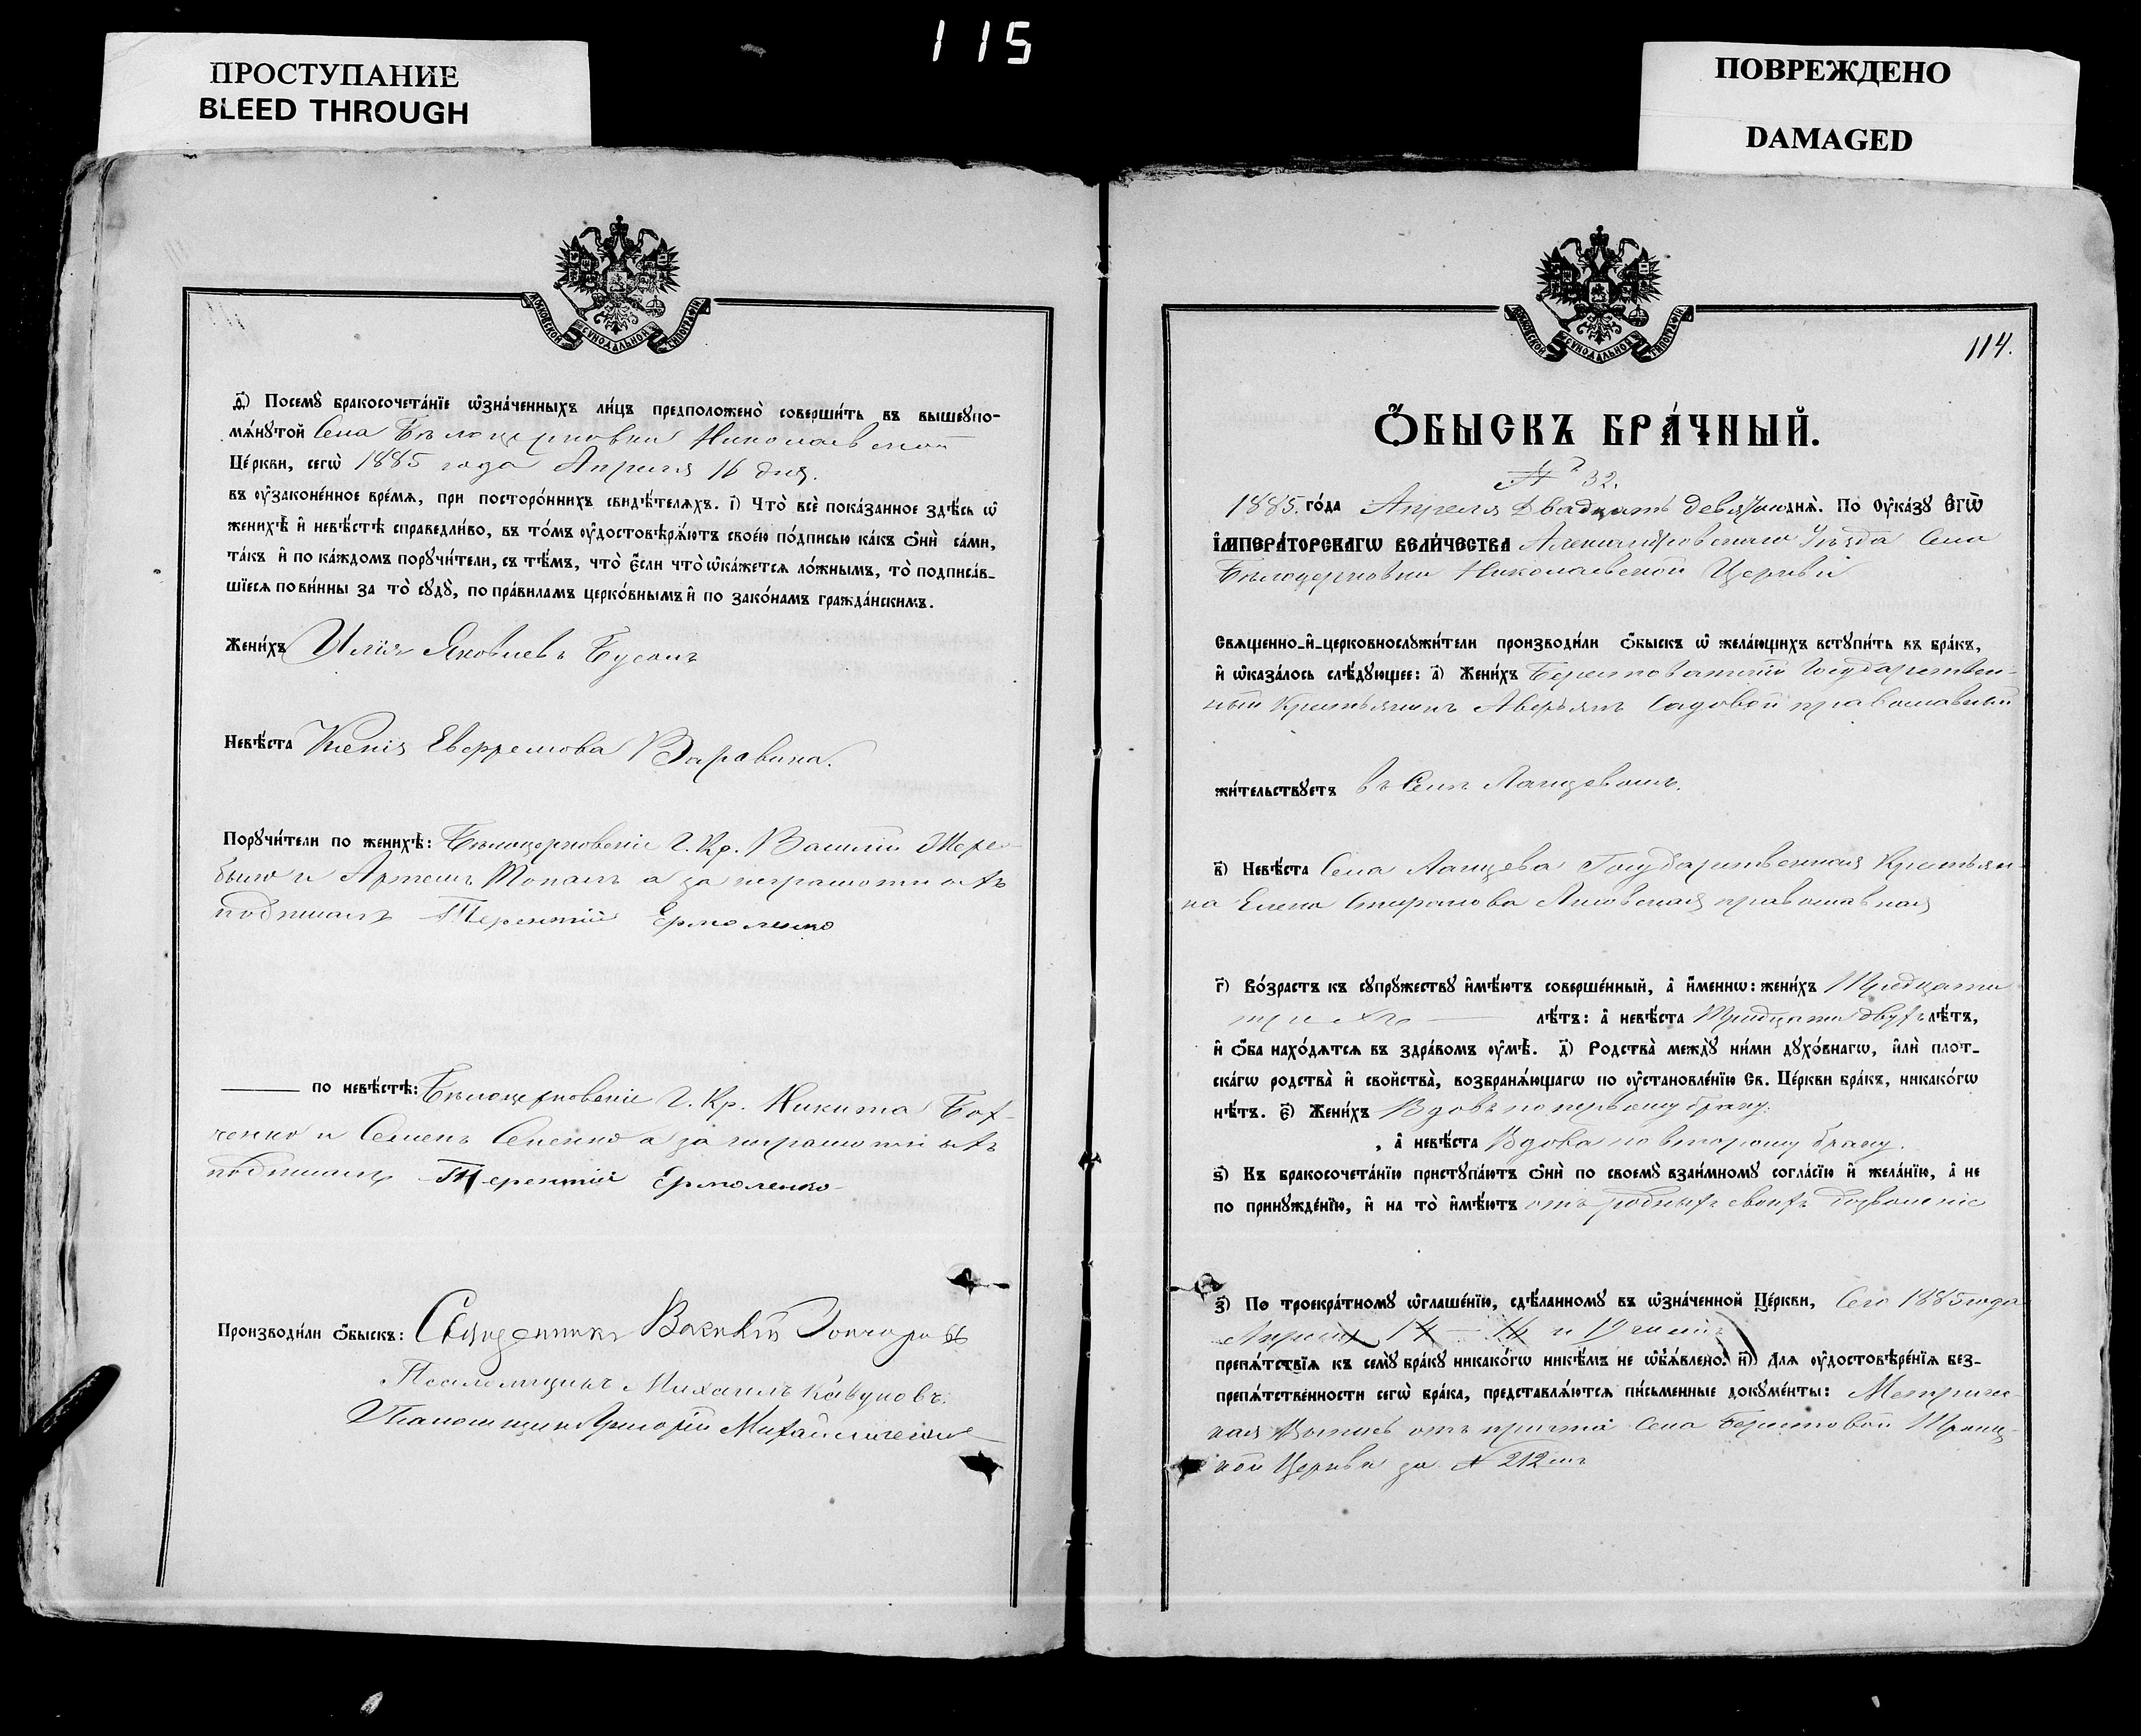 115
ПРОСТУПАНИЕ
BLEED THROUGH
ПОВРЕЖДЕНО
DAMAGED
МОСКОВСКОЙ СѴНОДАЛЬНОЙ ТИПОГРАФІИ
д҃) Посемꙋ̀ бракосочета́нїе ѡ҆зна́ченныхъ ли́цъ предположено̀ соверши́ть въ вышеꙋпо-
мѧ́нꙋтой Села Бѣлоцерковки Николаевской
Це́ркви, сегѡ̀ 1885 года Апрѣля 16 дня.
въ ᲂу҆законе́нное вре́мѧ, при посторо́ннихъ свидѣ́телѧхъ. і҃) Что̀ всѐ пока́занное здѣ́сь ѡ҆
женихѣ̀ и҆ невѣ́стѣ справедли́во, въ то́мъ ᲂу҆достовѣрѧ́ютъ свое́ю по́дписью ка́къ ѻ҆нѝ са́ми,
та́къ и҆ по ка́ждомъ порꙋчи́тели, съ тѣ́мъ, что̀ є҆́сли что̀ ѡ҆ка́жетсѧ ло́жнымъ, то̀ подписа́в-
шїесѧ пови́нны за то̀ сꙋдꙋ̀, по пра́виламъ церко́внымъ и҆ по зако́намъ гражда́нскимъ.
Жени́хъ Илія Яковлевъ Бусолъ
Невѣ́ста Ксенія Евфремова Варавина.
Порꙋчи́тели по женихѣ̀: Бѣлоцерковскіе Г. Кр. Василій Жере-
било и Артемъ Топалъ а за неграмотныхъ
подписалъ Терентій Ермоленко
по невѣ́стѣ: Бѣлоцерковскіе Г. Кр. Никита Бох-
ченко и Семенъ Сененко а за неграмотныхъ
подписалъ Терентій Ермоленко
Производи́ли ѻ҆́быскъ: Священникъ Василій Гончаровъ
Псаломщикъ Михаилъ Кавуновъ.
Псаломщикъ Григорій Михайличенко
114.
Ѻ҆́БЫСКЪ БРА́ЧНЫЙ.
№ 32.
1885. го́да Апрѣля Двадцать девятаго днѧ̀. По ᲂу҆ка́зꙋ Є҆гѡ̀
І҆МПЕРА́ТОРСКАГѠ ВЕЛИ́ЧЕСТВА Александровскаго Уѣзда Села
Бѣлоцерковки Николаевской Церкви
Свѧщенно-и҆-церковнослꙋжи́тели производи́ли ѻ҆́быскъ ѡ҆ жела́ющихъ встꙋпи́ть въ бра́къ,
и҆ ѡ҆каза́лось слѣ́дꙋющее: а҃) Жени́хъ Берестоватскій Государствен-
ный Крестьянинъ Аверьянъ Садовой православный
жи́тельствꙋетъ въ Селѣ Ланцевомъ.
в҃) Невѣ́ста Села Ланцева Государственная Крестьян-
ка Елена Спиромова Лисовская православная
г҃) Во́зрастъ къ сꙋпрꙋ́жествꙋ и҆мѣ́ютъ соверше́нный, а҆ и҆́меннѡ: жени́хъ Тридцати
трехъ лѣ́тъ: а҆ невѣ́ста Тридцати двухъ лѣ́тъ,
и҆ ѻ҆́ба нахо́дѧтсѧ въ здра́вомъ ᲂу҆мѣ̀. д҃) Родства̀ междꙋ̀ ни́ми дꙋхо́внагѡ, и҆лѝ пло́т-
скагѡ родства̀ и҆ свойства̀, возбранѧ́ющагѡ по ᲂу҆становле́нїю Св. Це́ркви бра́къ, никако́гѡ
нѣ́тъ. є҃) Жени́хъ Вдовъ по первому браку.
, а҆ невѣ́ста Вдова по второму браку.
ѕ҃) Къ бракосочета́нїю пристꙋпа́ютъ ѻ҆нѝ по своемꙋ̀ взаи́мномꙋ согла́сїю и҆ жела́нїю, а҆ не
по принꙋжде́нїю, и҆ на то̀ и҆мѣ́ютъ отъ родныхъ своихъ дозволеніе
з҃) По троекра́тномꙋ ѡ҆глаше́нїю, сдѣ́ланномꙋ въ ѡ҆зна́ченной Це́ркви, Сего 1885 года
Апрѣля 14 — 16 и 19 чиселъ
препѧ́тствїѧ къ семꙋ̀ бра́кꙋ никако́гѡ никѣ́мъ не ѡ҆б̾ѧ́влено. и҃) Длѧ ᲂу҆достовѣре́нїѧ без-
препѧ́тственности сегѡ̀ бра́ка, представлѧ́ютсѧ пи́сьменные докꙋме́нты: Метричес-
кая Выпись отъ причта Села Берестовой Троиц-
кой Церкви за № 212мъ